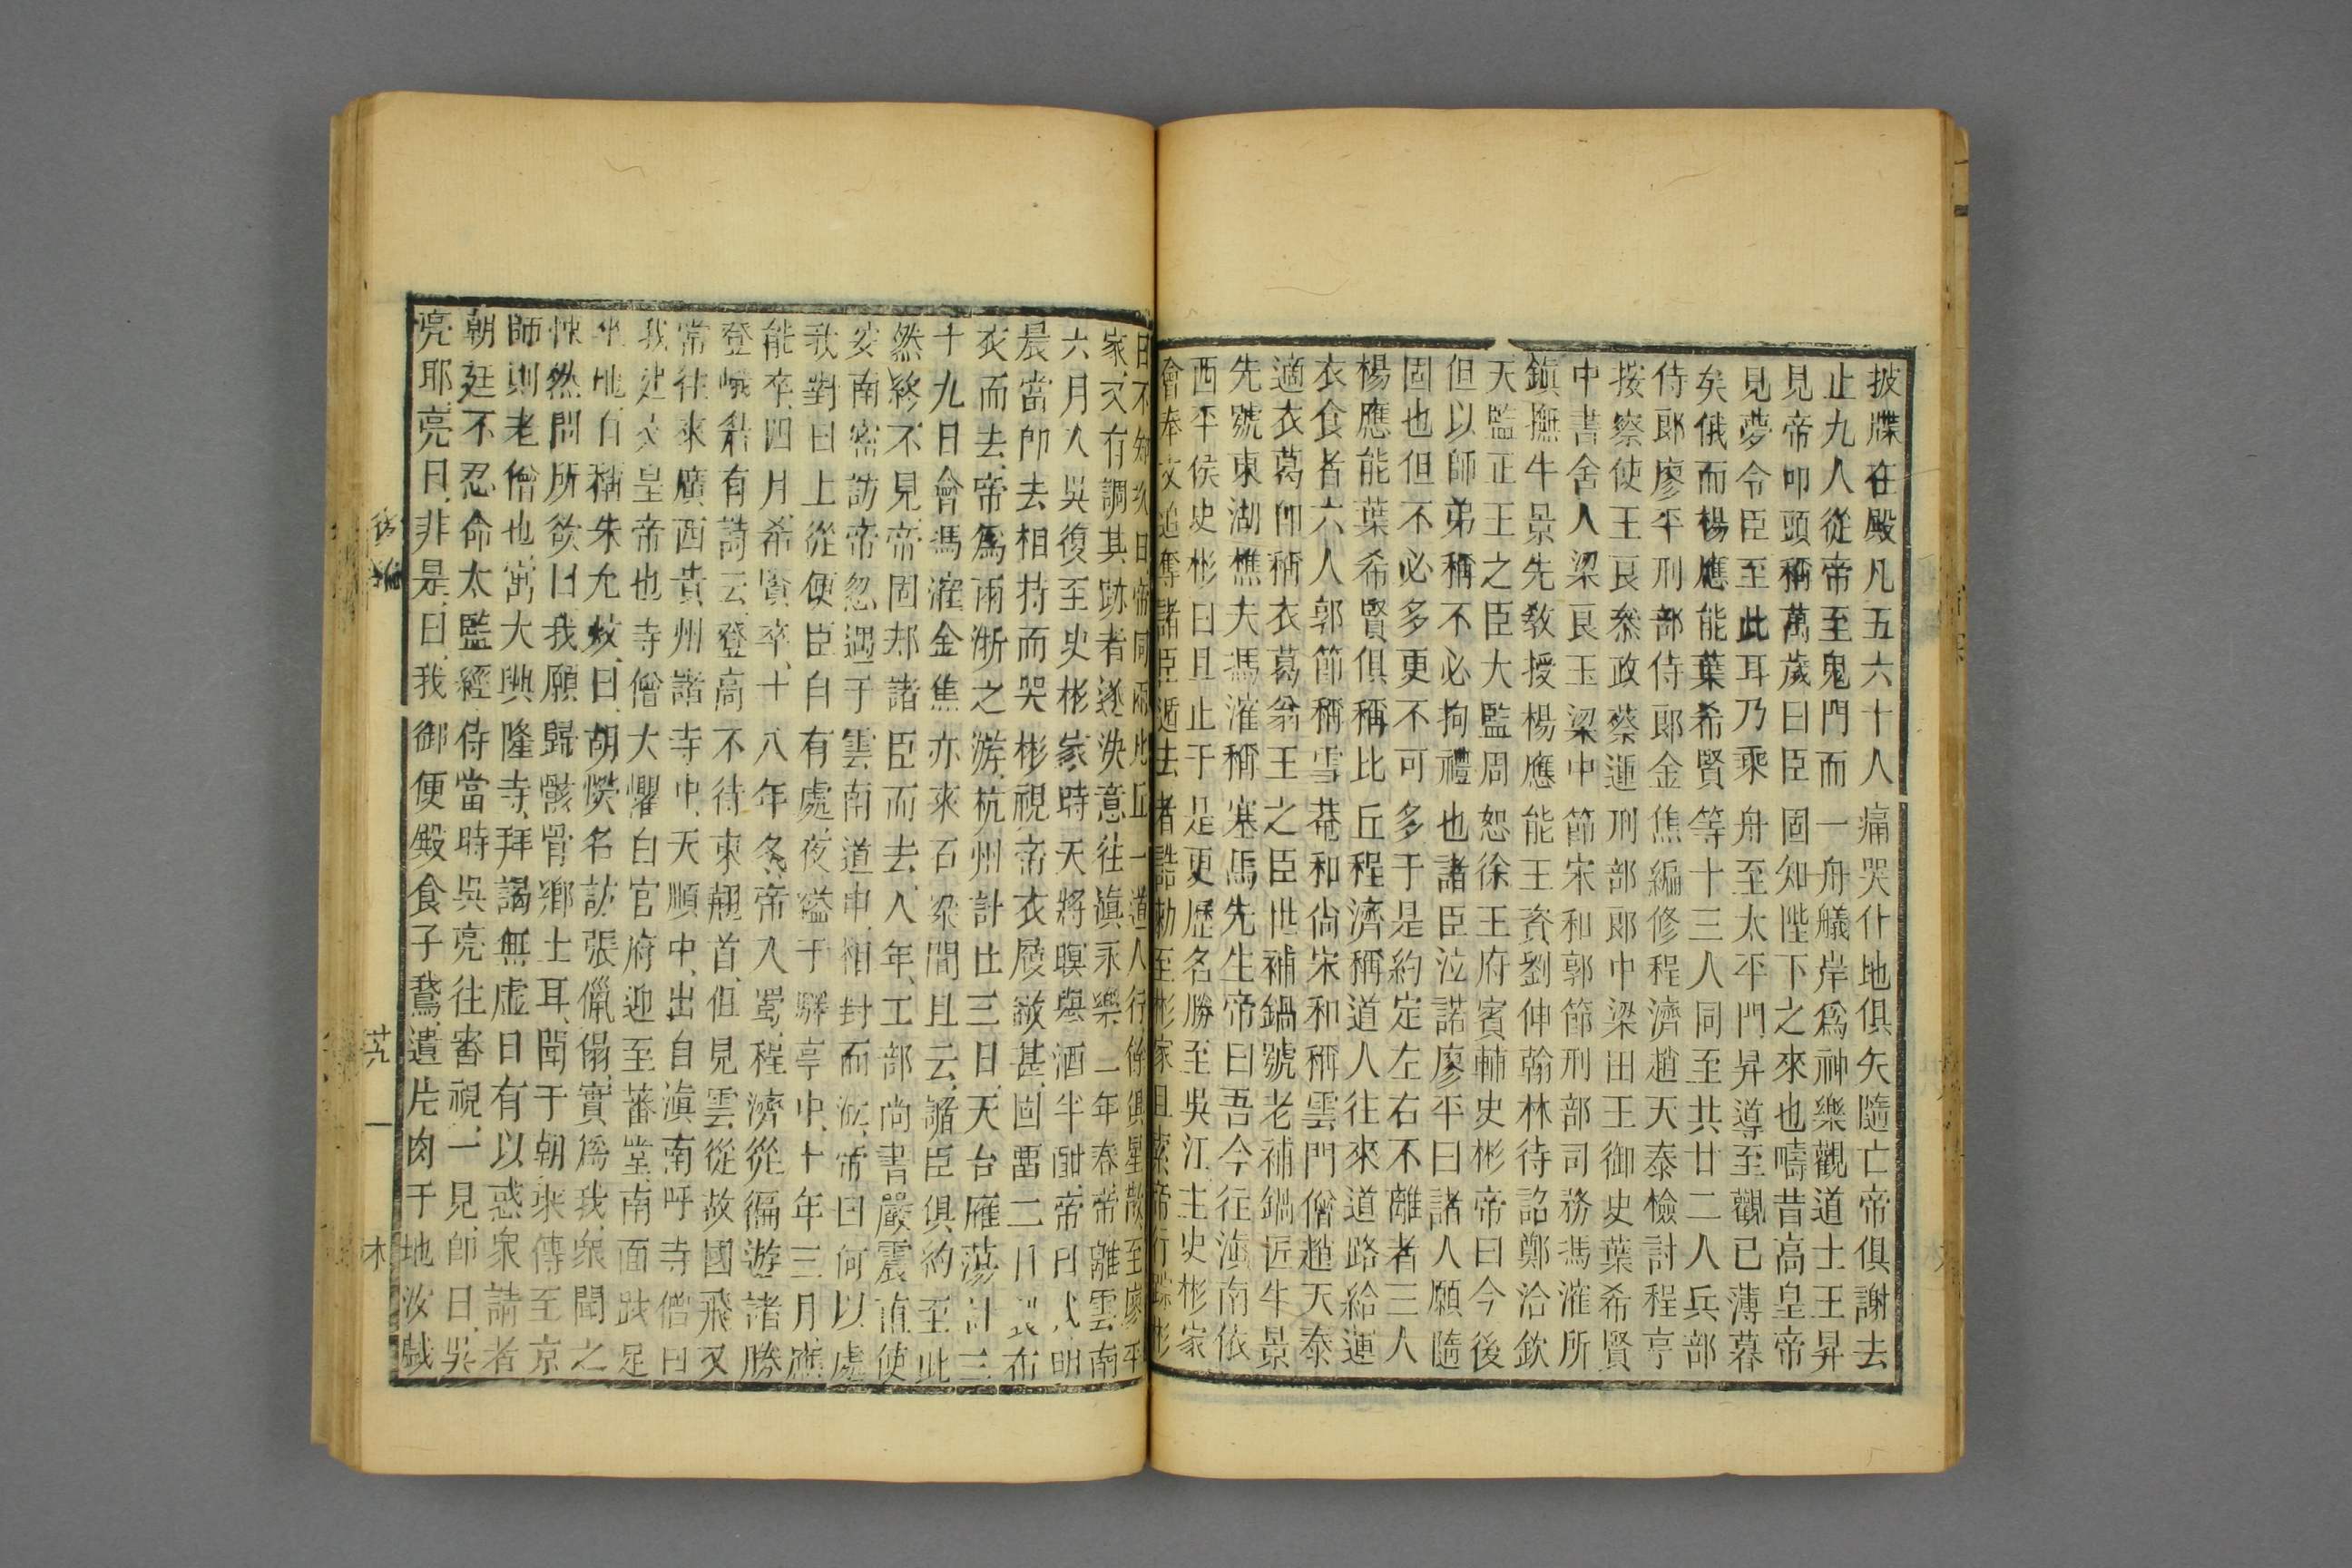 披牒在殿凡五六十人痛哭仆地俱矢隨亡帝俱謝去
止九人從帝至鬼門而一舟艤岸爲神樂觀道士王昇
見帝叩頭稱萬歲曰臣固知陛下之來也疇昔高皇帝
見夢令臣至此耳乃乘舟至太平門昇導至觀已薄暮
矣俄而楊應能葉希賢等十三人同至共廿二人兵部
侍郎廖平刑部侍郎金焦編修程濟趙天泰檢討程亨
按察使王艮叅政蔡運刑部郎中梁田王御史葉希賢
中書舍人梁良玉梁中節宋和郭節刑部司務馮㴶所
鎮撫牛景先敎授楊應能王資劉伸翰林待詔鄭洽欽
天監正王之臣大監周恕徐王府賓輔史彬帝曰今後
但以師弟稱不必拘禮也諸臣泣諾廖平曰諸人願隨
固也但不必多更不可多于是約定左右不離者三人
楊應能葉希賢俱稱比丘程濟稱道人往來道路給運
衣食者六人郭節稱雪菴和尙宋和稱雲門僧趙天泰
適衣葛卽稱衣葛翁王之臣世補鍋號老補鍋匠牛景
先號東湖樵夫馮㴶稱塞馬先生帝曰吾今往滇南依
西平侯史彬曰且止于是更歷名勝至吳江主史彬家
會奉文追奪諸臣遁去者誥勑至彬家且索帝行踪彬
曰不知次日帝同兩比丘一道人行餘俱星散至廖平
家又有調其跡者遂決意往滇永樂二年春帝離雲南
六月入吳復至史彬家時天將暝與酒半酣帝曰弋明
晨當卽去相持而哭彬視帝衣履敝甚固畱二日製布
衣而去帝爲兩浙之游杭州計廿三日天台雁蕩計三
十九日會馮㴶金焦亦來石梁間且云諸臣俱約至此
然終不見帝固却諸臣而去八年工部尙書嚴震直使
安南密訪帝忽遇于雲南道中相對而泣帝曰何以處
我對曰上從便臣自有處夜縊于驛亭中十年三月應
能卒四月希賢卒十八年冬帝入蜀程濟從徧遊諸勝
登峨糸有詩云登高不待東翹首但見雲從故國飛又
常往來廣西貴州諸寺中天順中出自滇南呼寺僧曰
我建文皇帝也寺僧大懼白官府迎至藩堂南面趺足
坐地自稱朱允炆曰胡濙名訪張儠傝實爲我衆聞之
悚然問所欲曰我願歸骸骨鄉土耳聞于朝乘傳至京
師則老僧也寓大興隆寺拜謁無虛日有以惑衆請者
朝廷不忍命太監經侍當時吳亮往審視一見師曰吳
亮耶亮曰非是曰我御便殿食子鵞遺片肉于地汝戲